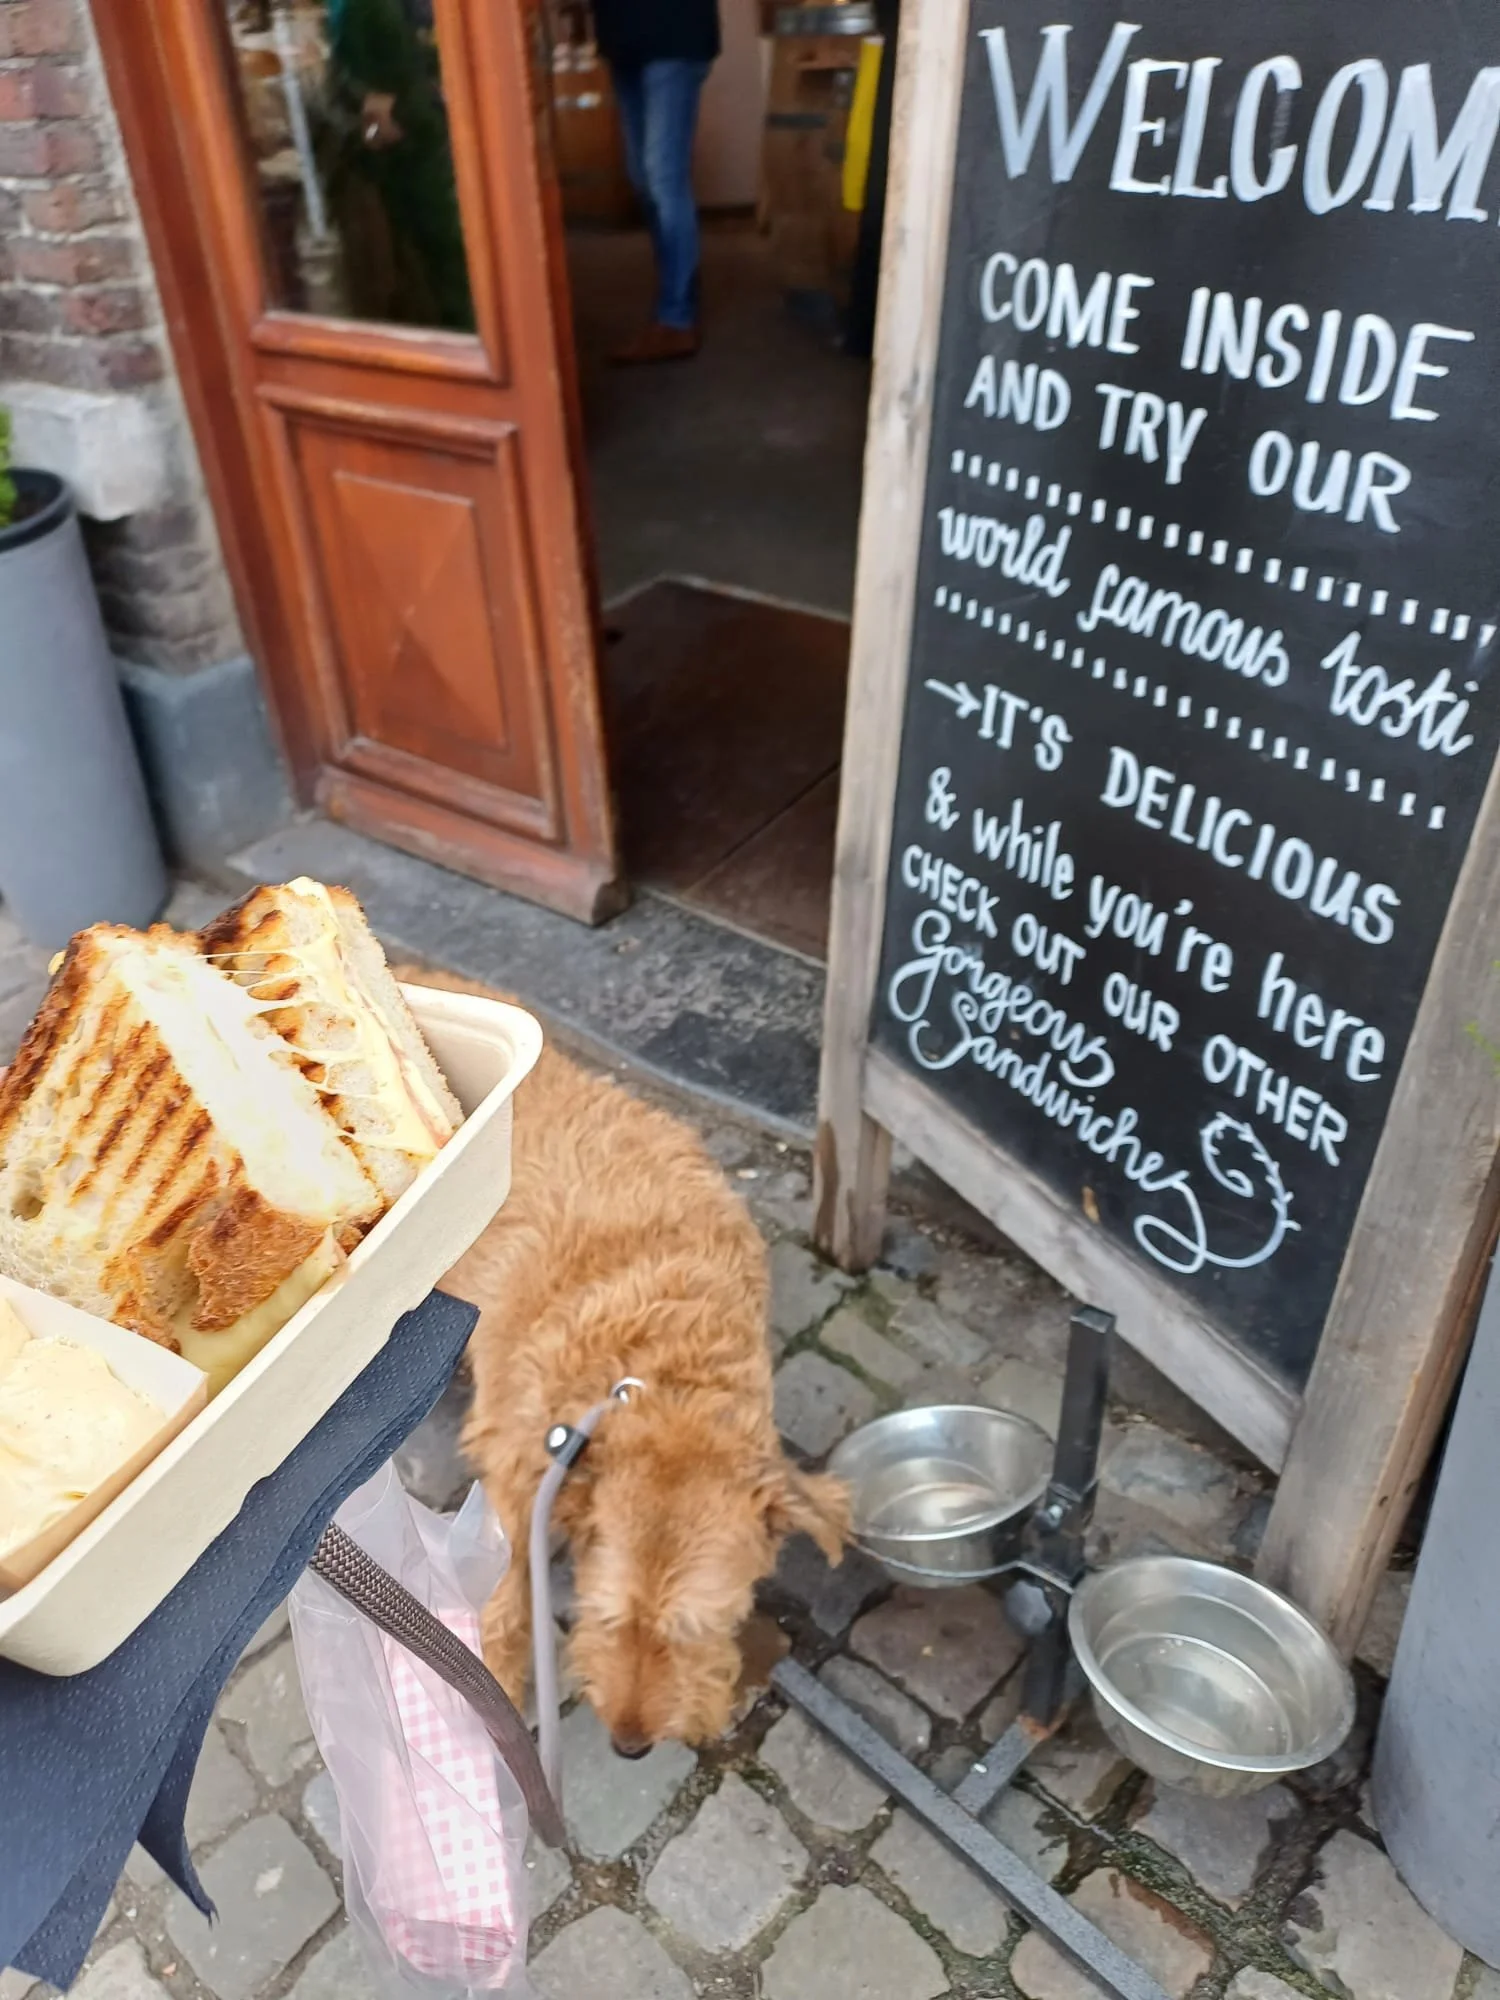 WELCOM
COME INSIDE
AND TRY OUR
world famous tosti
→IT'S DELICIOUS
& while you're here
CHECK OUT OUR OTHER
Gorgeous
Sandwiches